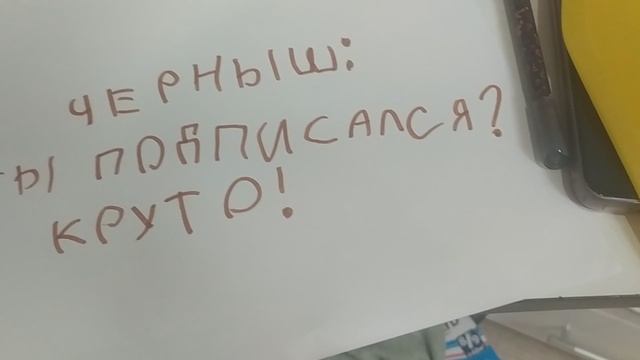 ЧЕРНЫШ:
ТЫ ПОДПИСАЛСЯ?
КРУТО!